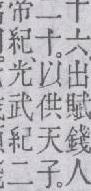 十六出賦錢人
二十。以供天子。
帝紀、光武紀二